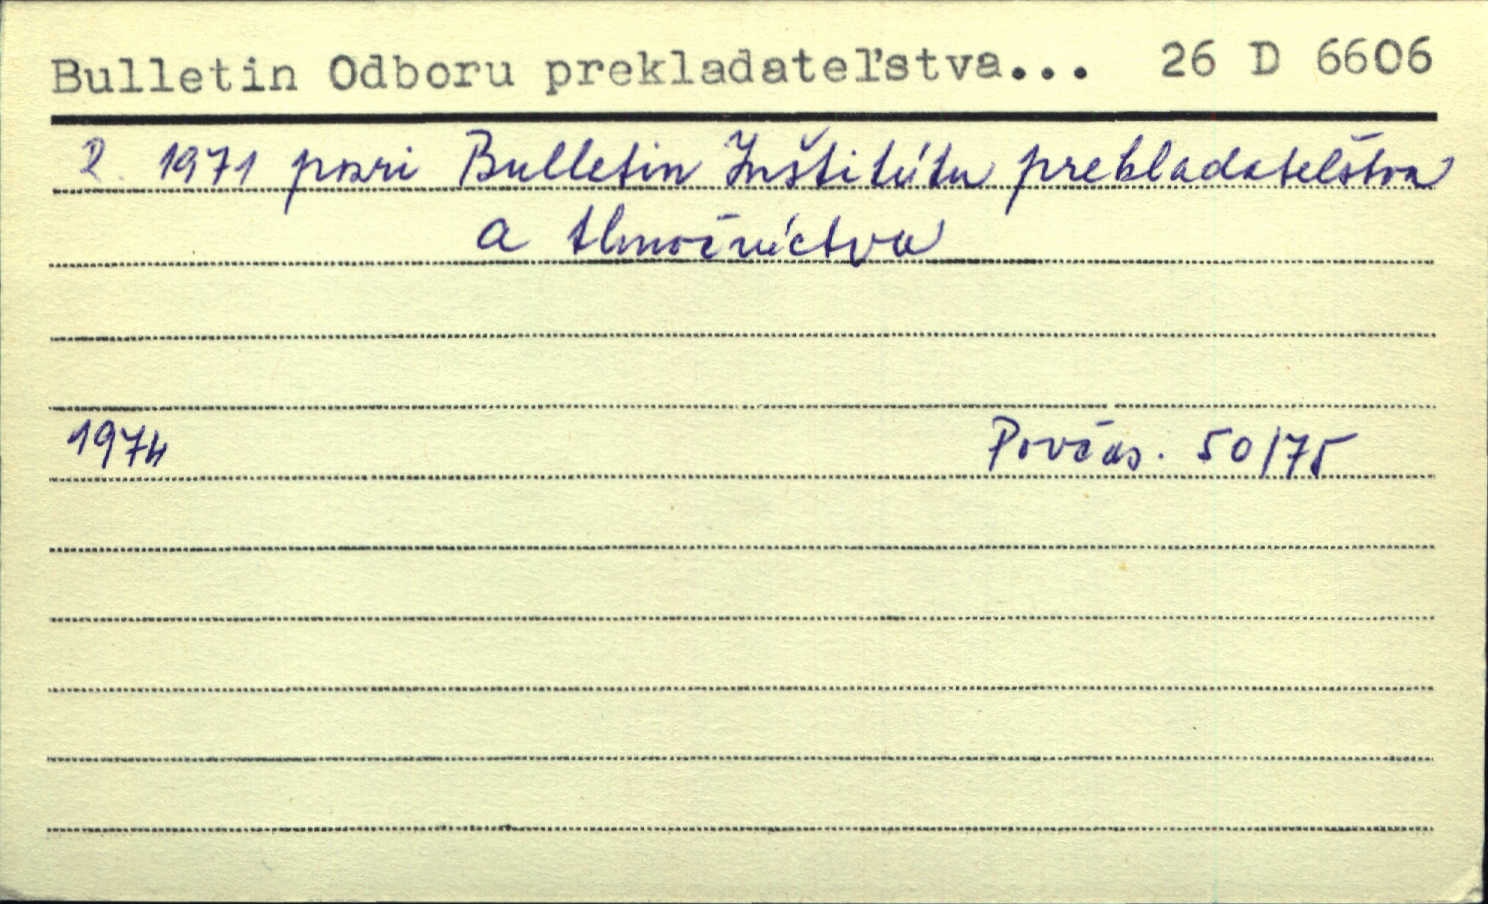 Bulletin Odboru prekladateľstva... 26 D 6606
R. 1971 pozri Bulletin Inštitútu prekladatelštva
a tlmočníctva
1974 Povčas. 50/75